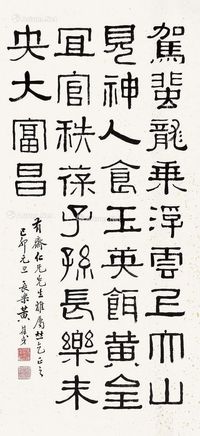 駕蜚龍乘浮雲上大山
見神人食玉英餌黃金
宜官秩葆子孫長樂未
央大富昌
齋仁兄先生雅屬並乞正之
己卯元旦 長樂黃葆戉